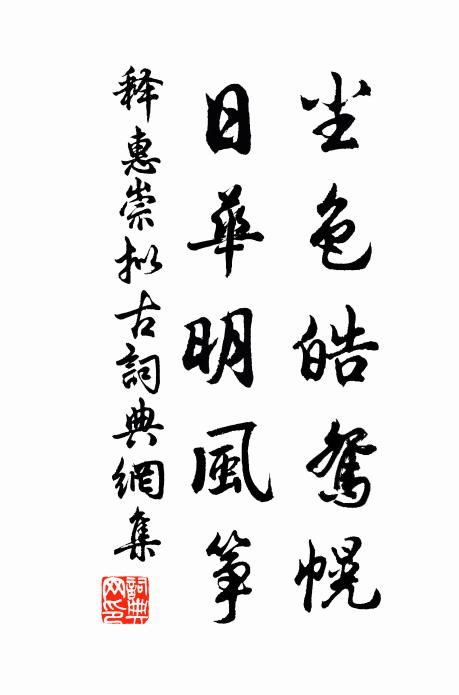 尘色皓鸳幌
日華明風筝
释惠崇拟古詞典網集
詞典网印